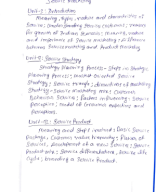 Service Marketing
Unit-I Introduction
Meaning, types, nature and characteristics of
Services; understanding Service customers; reasons
for growth of Indian Services; nature, need
and importance of Service marketing; difference
between Service marketing and Product marketing
Unit-II Service Strategy
Strategy Planning Process; Steps in Strategy
Planning Process; Market oriented Service
Strategy; Service
Strategy; Service marketing
behaviour Services; Factors influencing Service
perceptions; model of customer expectation and
perceptions.
Unit-III Service Product
Meaning and Staff; nature; Basic Service
Package; Customer value hierarchy; Phases of
Service; Development of a new Service; Service
Product mix; Service differentiation; Service life
Cycle; branding a Service Product.